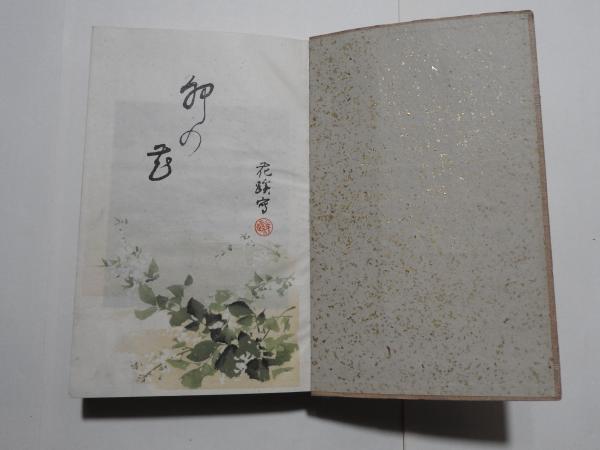 卯の
花
花蹊写